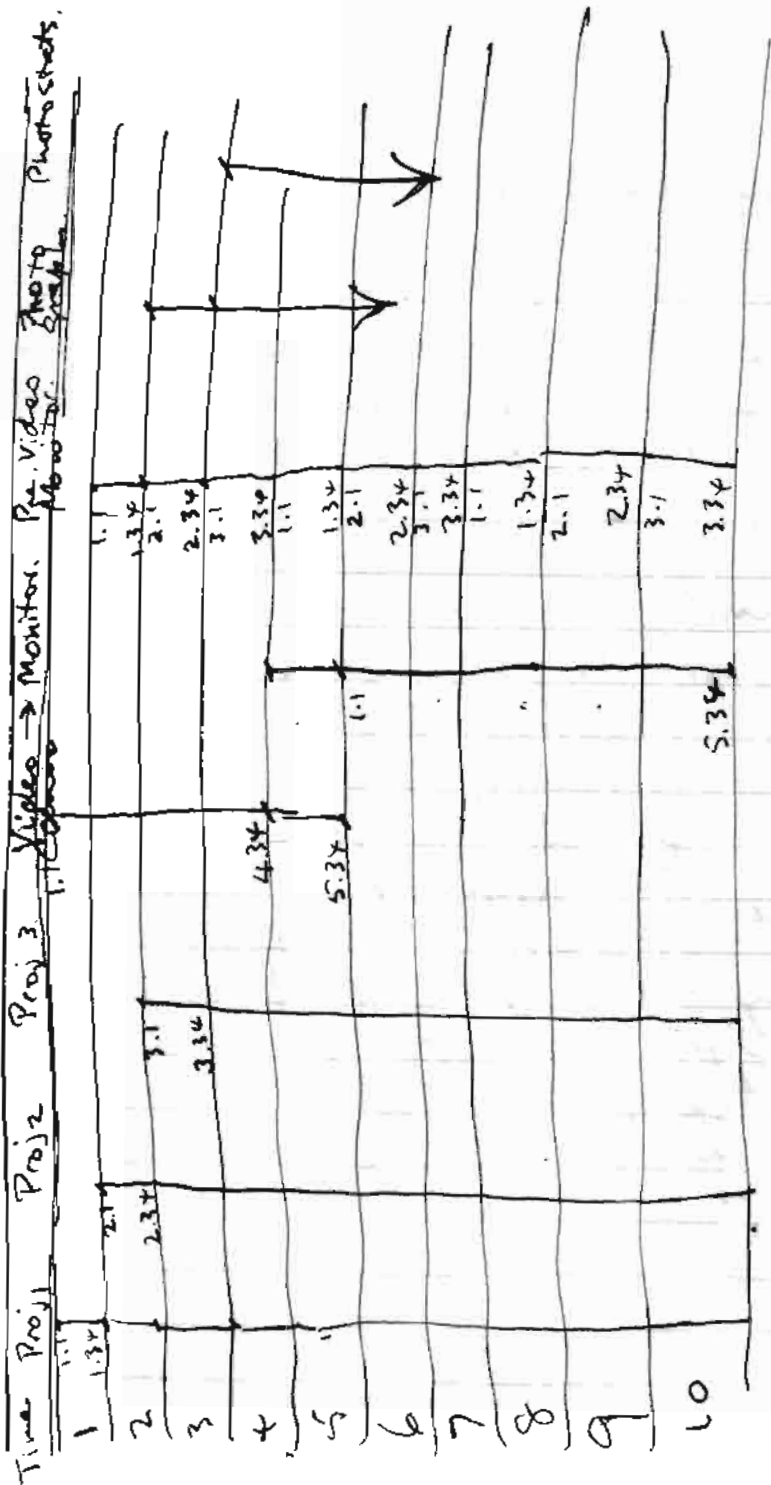 Time Proj1 Proj2 Proj 3 Video → Monitor. Pre. Video Photo Photostats.
1.1 Monitor.
1 1.1 1.34
2.1 1.1
2 2.34 3.1 1.34 2.1
3 3.34 2.34 3.1
4 4.34 3.34 1.1
5 5.34 1.1 1.34 2.1
6 2.34 3.1
7 3.34 1.1
8 1.34 2.1
9 2.34 3.1
10 5.34 3.34